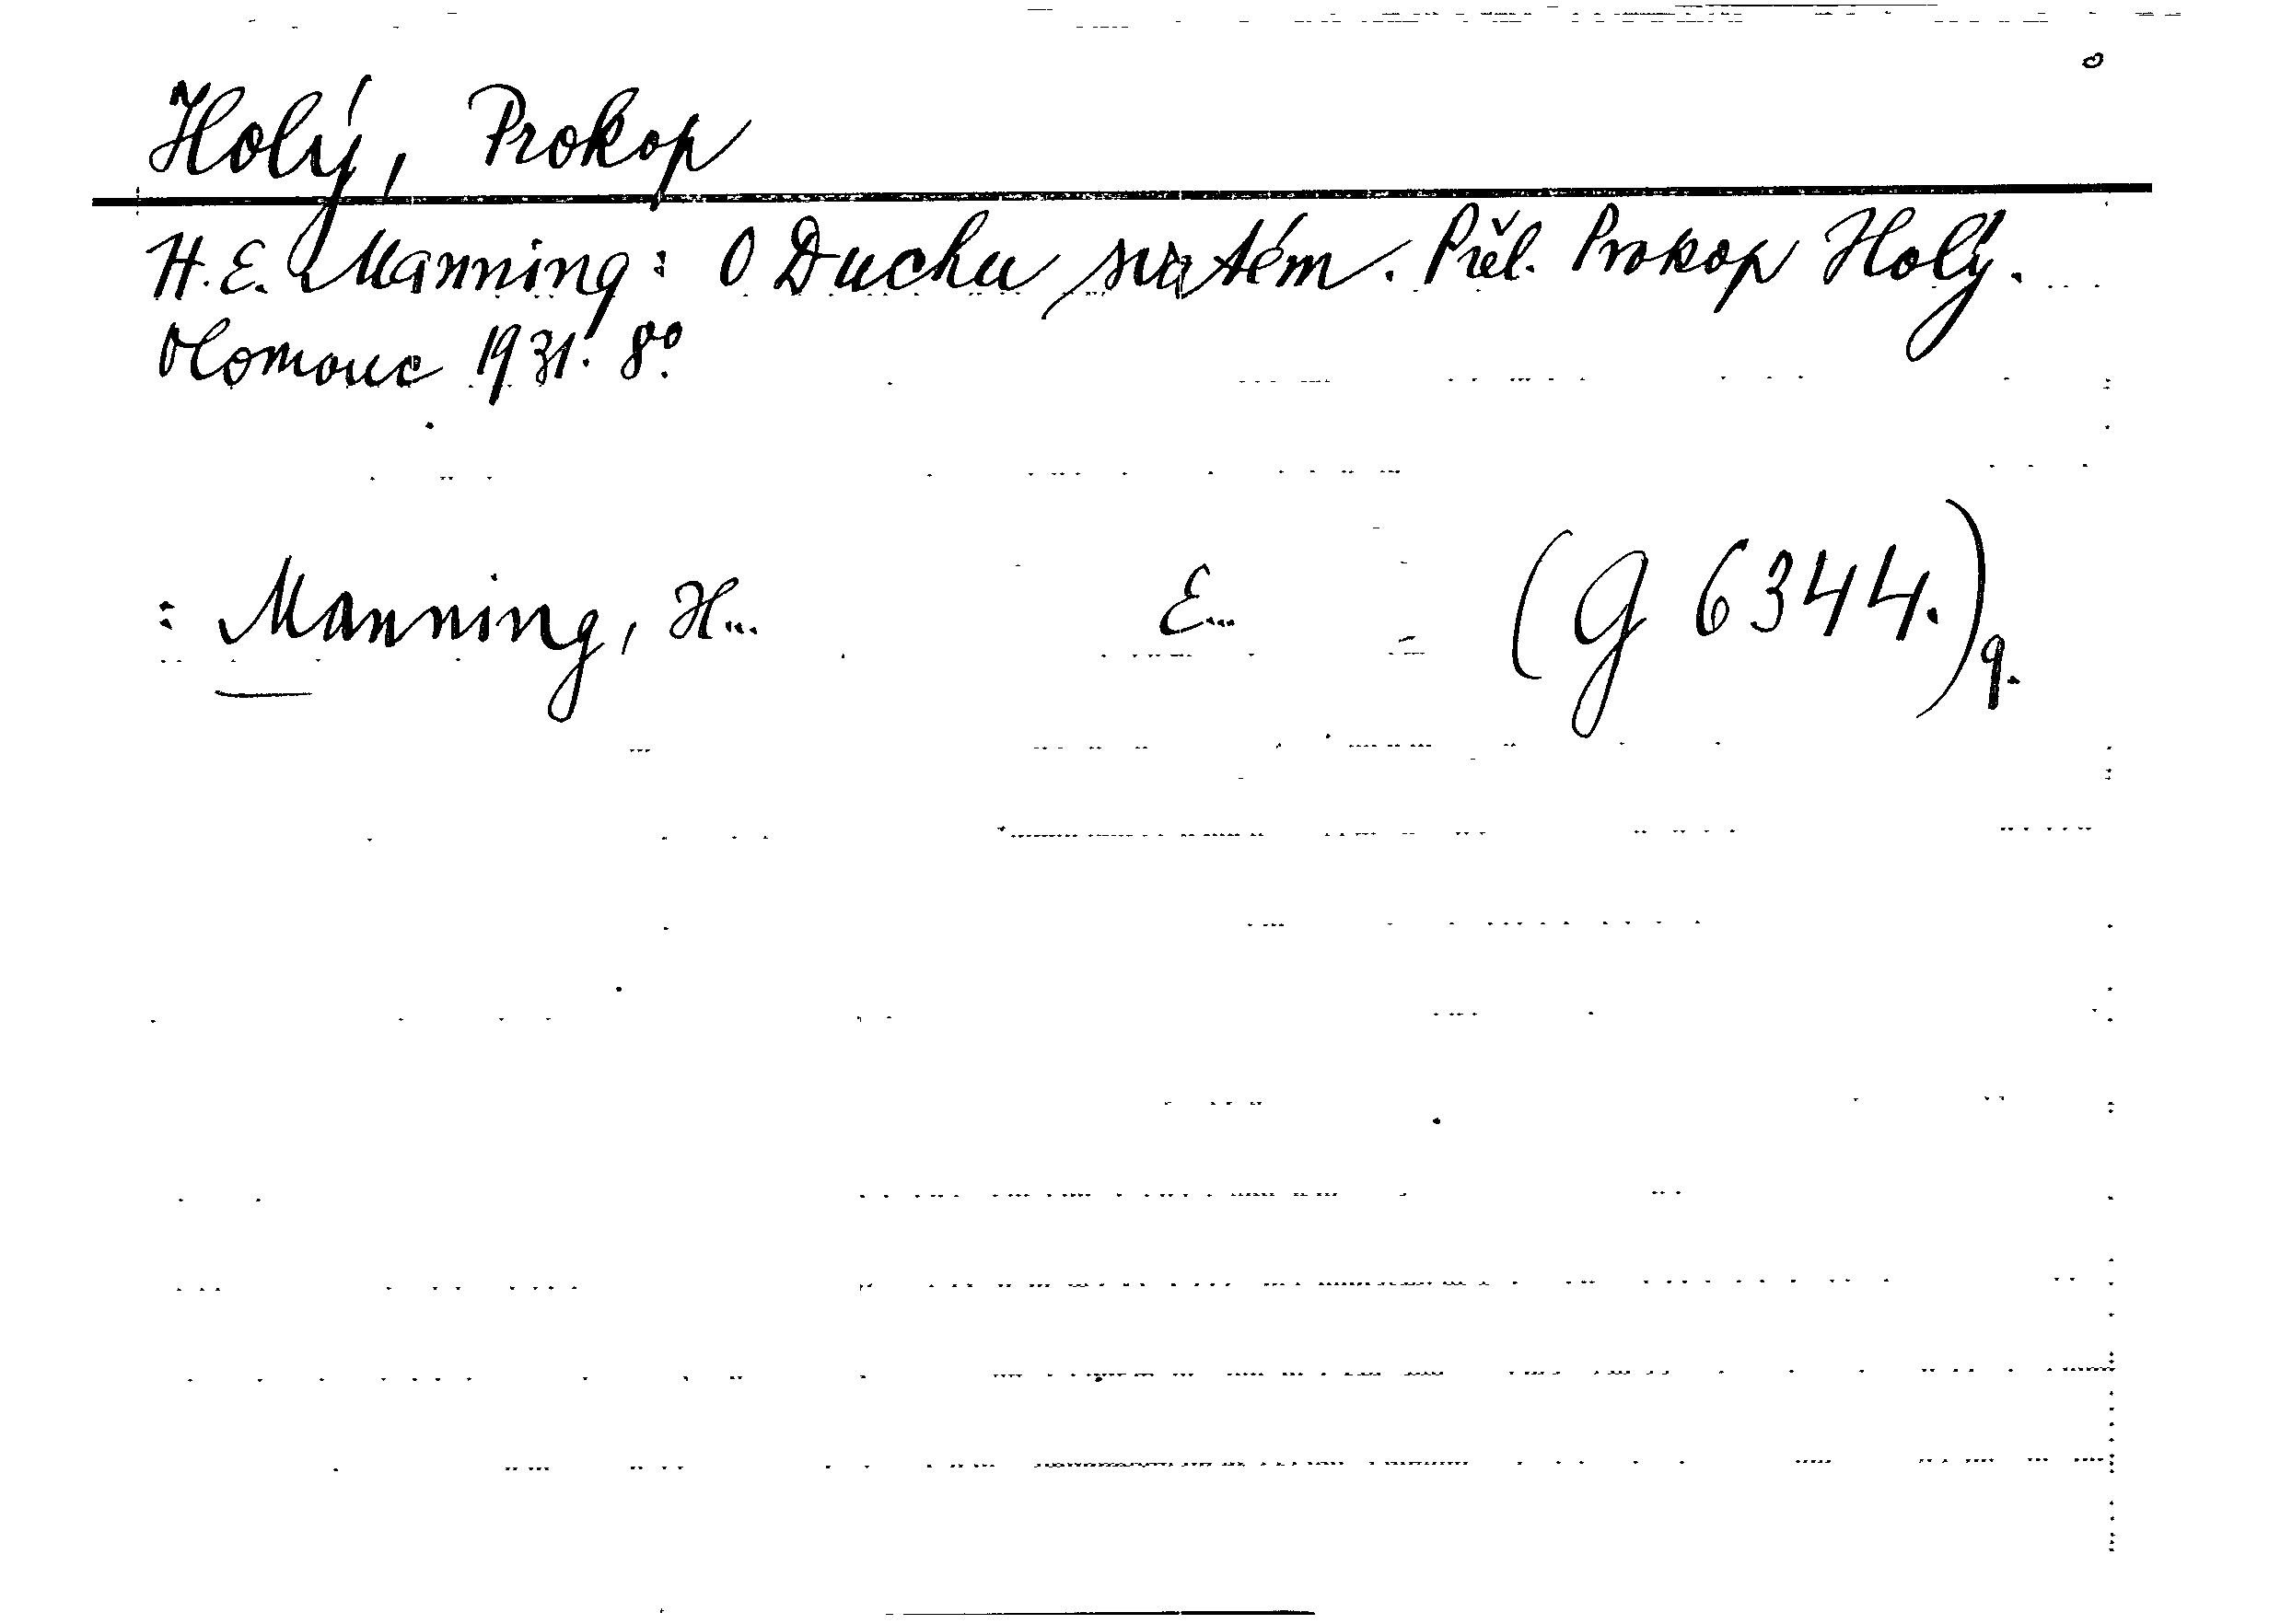 Holý, Prokop
H. E. Manning: O Duchu svatém. Přel. Prokop Holý.
Olomouc 1931. 8°.
: Manning, H... E... (G 6344.) q.